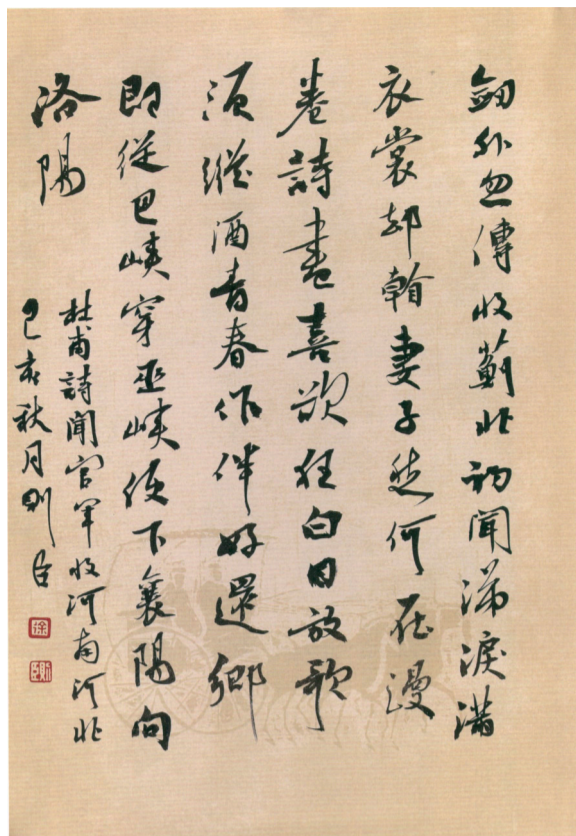 劒外忽傳收薊北初聞涕淚滿
衣裳却看妻子愁何在漫
卷詩書喜欲狂白日放歌
須縱酒青春作伴好還鄉
即從巴峽穿巫峽便下襄陽向
洛陽
杜甫詩聞官軍收河南河北
己亥秋月則臣
徐
則臣